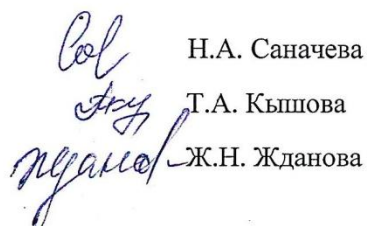 Н.А. Саначева
Т.А. Кышова
Ж.Н. Жданова